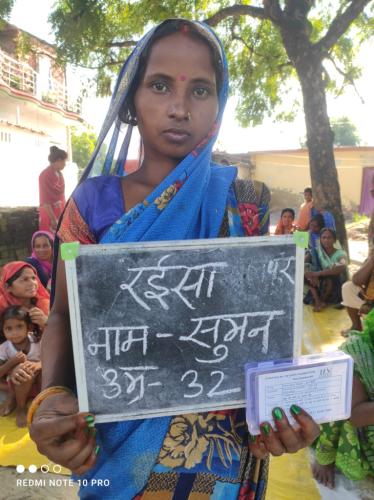 रईसा पुर
नाम - सुमन
उम्र - 32
REDMI NOTE 10 PRO